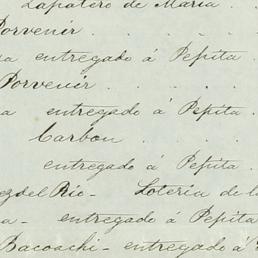 Zapatero de Maria . .
Porvenir . . . .
a entregado á Pepita .
Porvenir . . . .
a entregado á Pepita .
Carbon . . . .
entregado á Pepita .
ez del Rio - Loteria de l
a - entregado á Pepita
Bacoachi - entregado á